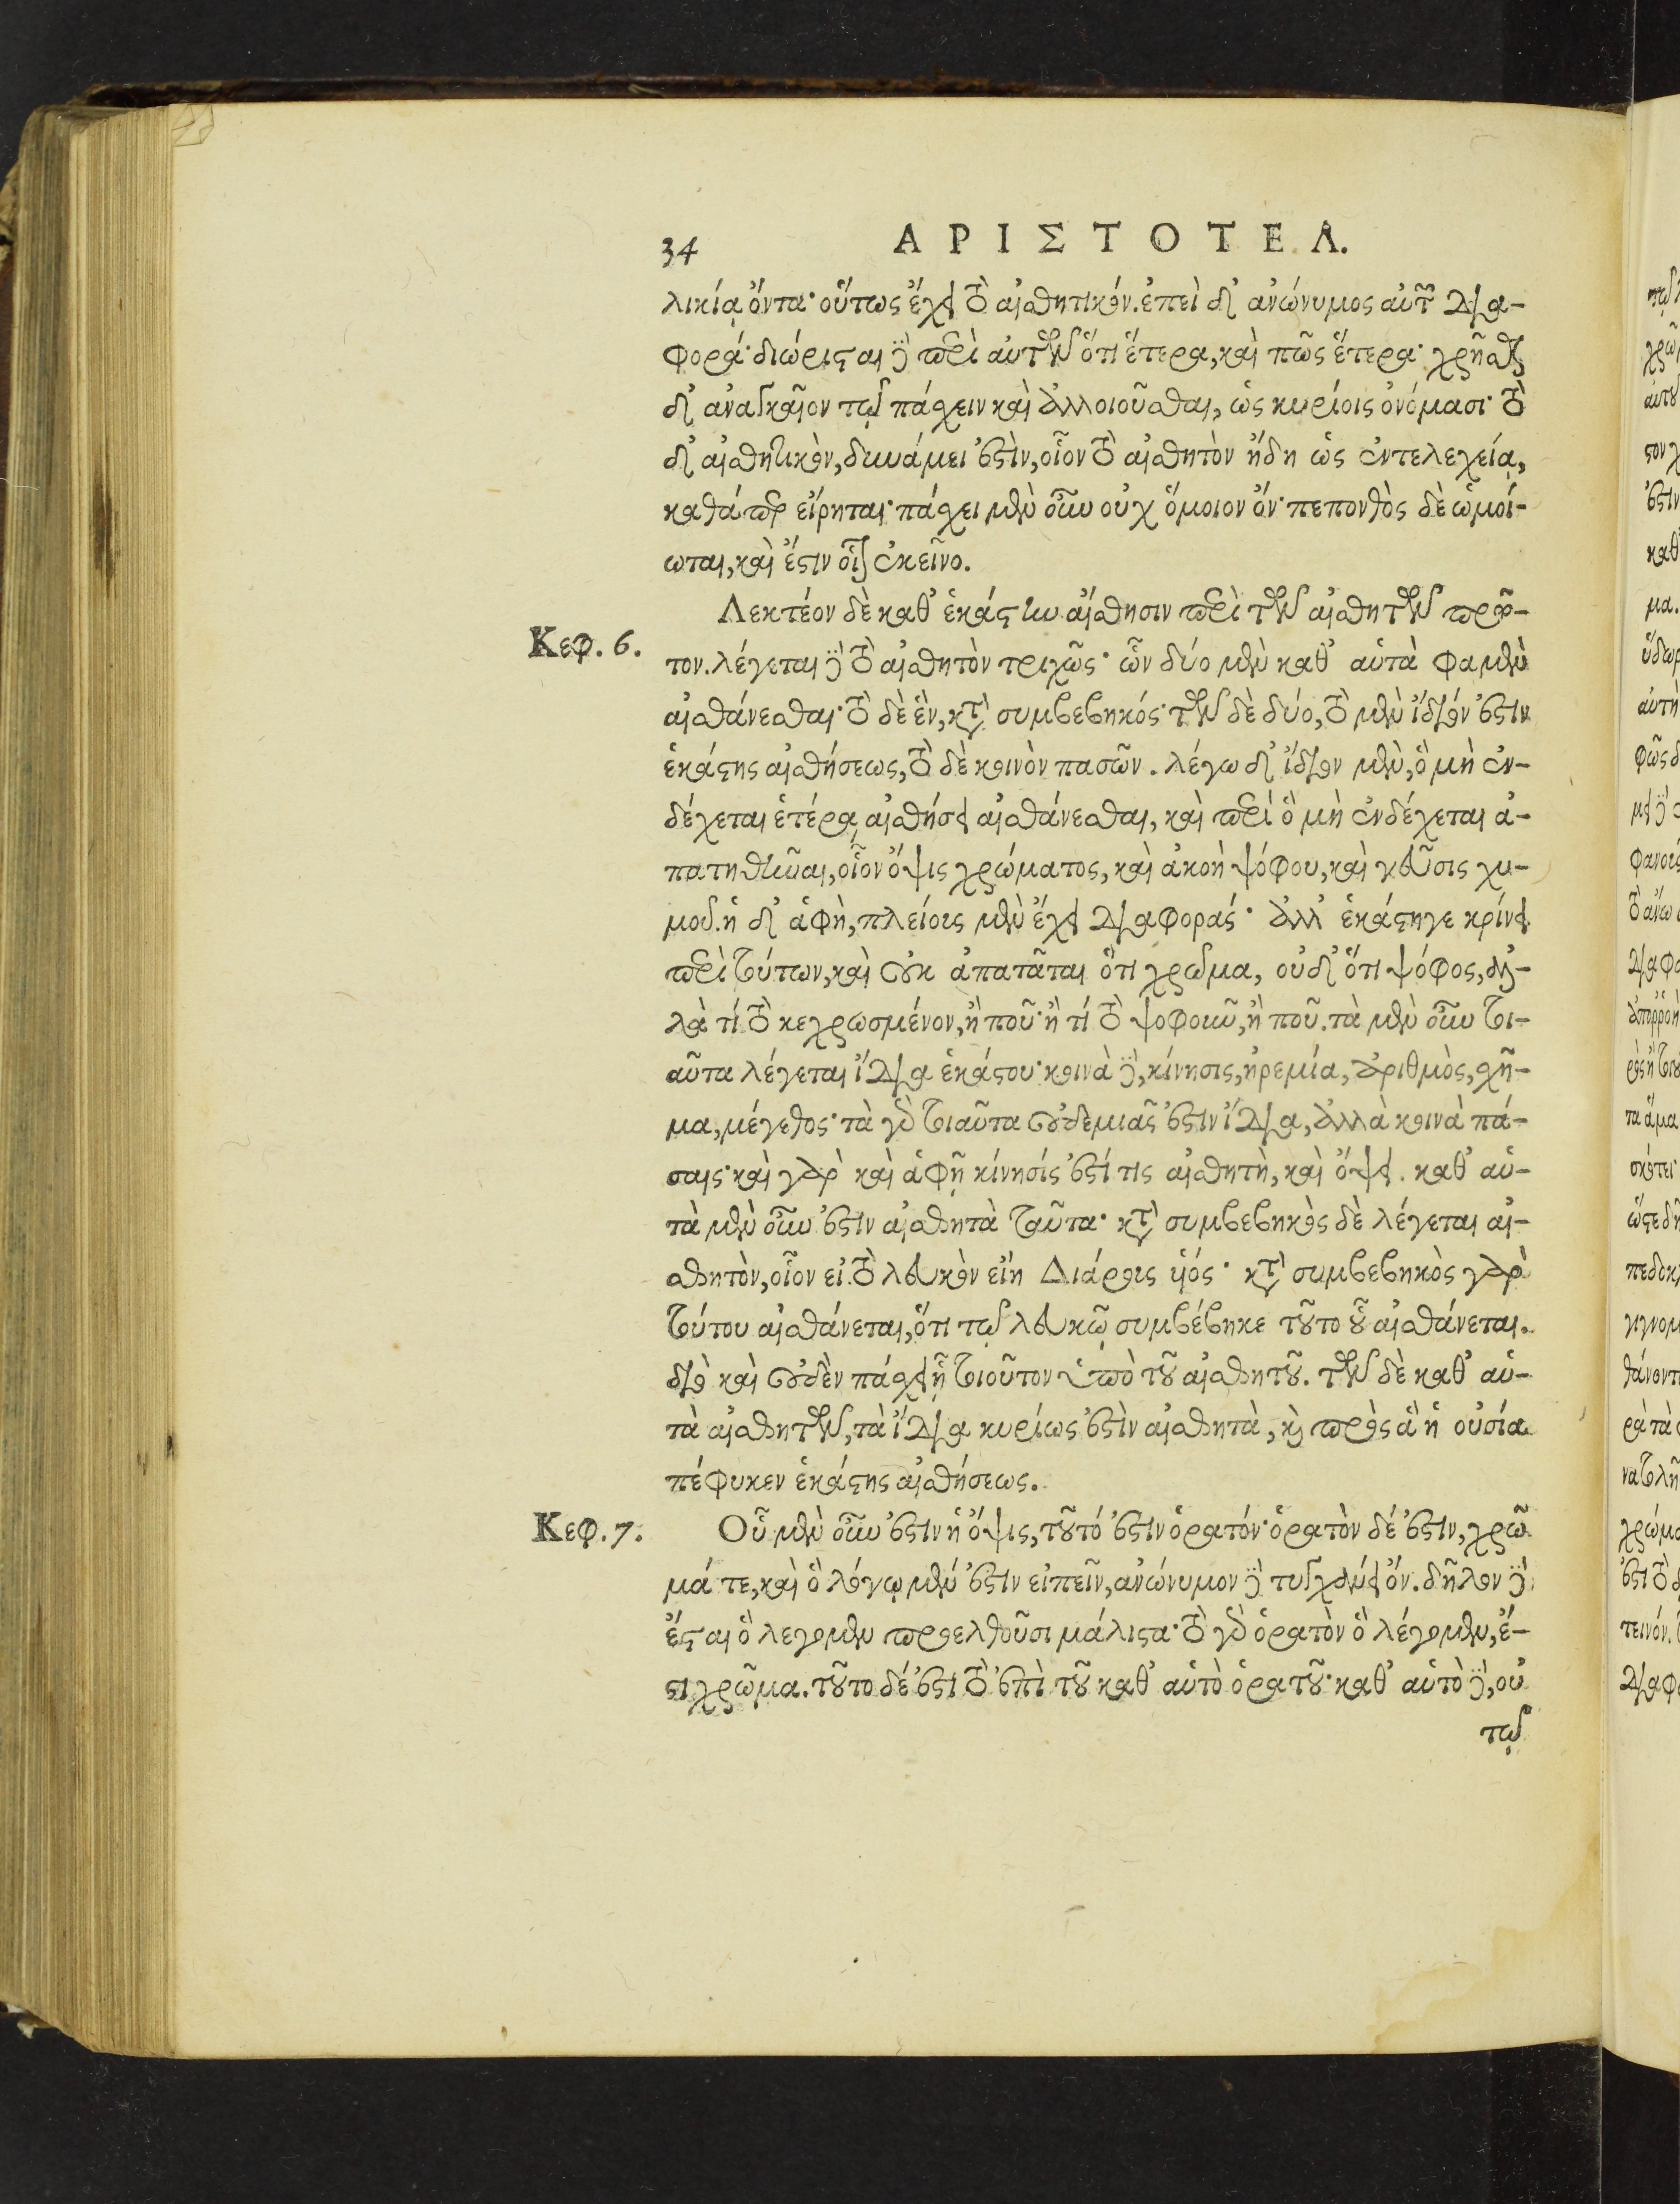 34 ΑΡΙΣΤΟΤΕΛ.
λικίᾳ ὄντα· οὕτως ἔχει τὸ αἰσθητικόν. ἐπεὶ δ' ἀνώνυμος αὐτῶν δια-
φορά· διώρισται δὲ περὶ αὐτῶν ὅτι ἕτερα, καὶ πῶς ἕτερα· χρῆσθαι
δ' ἀναγκαῖον τῷ πάσχειν καὶ ἀλλοιοῦσθαι, ὡς κυρίοις ὀνόμασι· τὸ
δ' αἰσθητικὸν, δυνάμει ἐστὶν, οἷον τὸ αἰσθητὸν ἤδη ὡς ἐντελεχείᾳ,
καθάπερ εἴρηται· πάσχει μὲν οὖν οὐχ ὅμοιον ὄν· πεπονθὸς δὲ ὡμοί-
ωται, καὶ ἔστιν οἷον ἐκεῖνο.
Κεφ. 6.
Λεκτέον δὲ καθ' ἑκάστην αἴσθησιν περὶ τῶν αἰσθητῶν πρῶ-
τον. λέγεται δὲ τὸ αἰσθητὸν τριχῶς· ὧν δύο μὲν καθ' αὑτὰ φαμὲν
αἰσθάνεσθαι· τὸ δὲ ἓν, κατὰ συμβεβηκός· τῶν δὲ δύο, τὸ μὲν ἴδιόν ἐστιν
ἑκάστης αἰσθήσεως, τὸ δὲ κοινὸν πασῶν. λέγω δ' ἴδιον μὲν, ὃ μὴ ἐν-
δέχεται ἑτέρᾳ αἰσθήσει αἰσθάνεσθαι, καὶ περὶ ὃ μὴ ἐνδέχεται ἀ-
πατηθῆναι, οἷον ὄψις χρώματος, καὶ ἀκοὴ ψόφου, καὶ γεῦσις χυ-
μοῦ. ἡ δ' ἁφὴ, πλείους μὲν ἔχει διαφοράς· ἀλλ' ἑκάστη γε κρίνει
περὶ τούτων, καὶ οὐκ ἀπατᾶται ὅτι χρῶμα, οὐδ' ὅτι ψόφος, ἀλ-
λὰ τί τὸ κεχρωσμένον, ἢ ποῦ· ἢ τί τὸ ψοφοῦν, ἢ ποῦ. τὰ μὲν οὖν τοι-
αῦτα λέγεται ἴδια ἑκάστου· κοινὰ δὲ, κίνησις, ἠρεμία, ἀριθμὸς, σχῆ-
μα, μέγεθος· τὰ γὰρ τοιαῦτα οὐδεμιᾶς ἐστιν ἴδια, ἀλλὰ κοινὰ πά-
σαις· καὶ γὰρ καὶ ἁφῇ κίνησίς ἐστί τις αἰσθητὴ, καὶ ὄψει. καθ' αὑ-
τὰ μὲν οὖν ἐστιν αἰσθητὰ ταῦτα· κατὰ συμβεβηκὸς δὲ λέγεται αἰ-
σθητὸν, οἷον εἰ τὸ λευκὸν εἴη Διάρους υἱός· κατὰ συμβεβηκὸς γὰρ
τούτου αἰσθάνεται, ὅτι τῷ λευκῷ συμβέβηκε τοῦτο οὗ αἰσθάνεται.
διὸ καὶ οὐδὲν πάσχει ᾗ τοιοῦτον ὑπὸ τοῦ αἰσθητοῦ. τῶν δὲ καθ' αὑ-
τὰ αἰσθητῶν, τὰ ἴδια κυρίως ἐστὶν αἰσθητὰ, καὶ πρὸς ἃ ἡ οὐσία
πέφυκεν ἑκάστης αἰσθήσεως.
Κεφ. 7.
Οὗ μὲν οὖν ἐστιν ἡ ὄψις, τοῦτό ἐστιν ὁρατόν· ὁρατὸν δέ ἐστιν, χρῶ
μά τε, καὶ ὃ λόγῳ μέν ἐστιν εἰπεῖν, ἀνώνυμον δὲ τυγχάνει ὄν. δῆλον δὲ
ἔσται ὃ λέγομεν προελθοῦσι μάλιστα· τὸ γὰρ ὁρατὸν ὃ λέγομεν, ἔ-
στι χρῶμα. τοῦτο δέ ἐστι τὸ ἐπὶ τοῦ καθ' αὑτὸ ὁρατοῦ· καθ' αὑτὸ δὲ, οὐ
τῷ